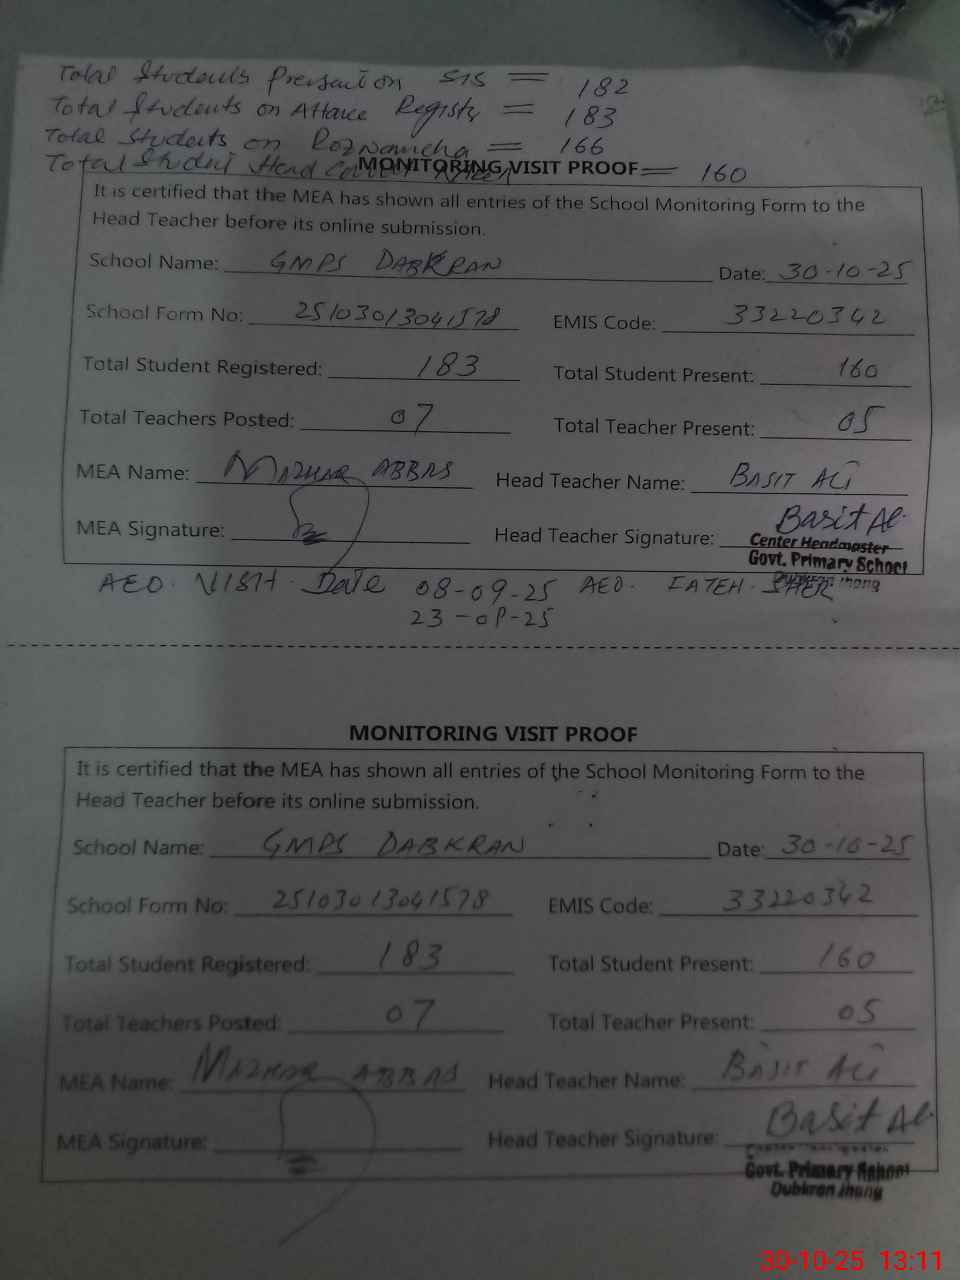 Total Students Present on SIS = 182
Total Students on Attance Registr = 183
Total Students on Roznamcha = 166
Total Student Head Count = 160
MONITORING VISIT PROOF
It is certified that the MEA has shown all entries of the School Monitoring Form to the
Head Teacher before its online submission.
School Name: GMPS DABKRAN Date: 30-10-25
School Form No: 25103013041578 EMIS Code: 33220342
Total Student Registered: 183 Total Student Present: 160
Total Teachers Posted: 07 Total Teacher Present: 05
MEA Name: MAZHAR ABBAS Head Teacher Name: BASIT ALI
MEA Signature: Head Teacher Signature: Basit Al
Center Headmaster
Govt. Primary School
Dubkran Jhang
AEO. VISIT. Date 08-09-25 AEO. FATEH. SHER
23-09-25
MONITORING VISIT PROOF
It is certified that the MEA has shown all entries of the School Monitoring Form to the
Head Teacher before its online submission.
School Name: GMPS DABKRAN Date: 30-10-25
School Form No: 25103013041578 EMIS Code: 33220342
Total Student Registered: 183 Total Student Present: 160
Total Teachers Posted: 07 Total Teacher Present: 05
MEA Name: MAZHAR ABBAS Head Teacher Name: BASIT ALI
MEA Signature: Head Teacher Signature: Basit Al
Govt. Primary School
Dubkran Jhang
30-10-25 13:11